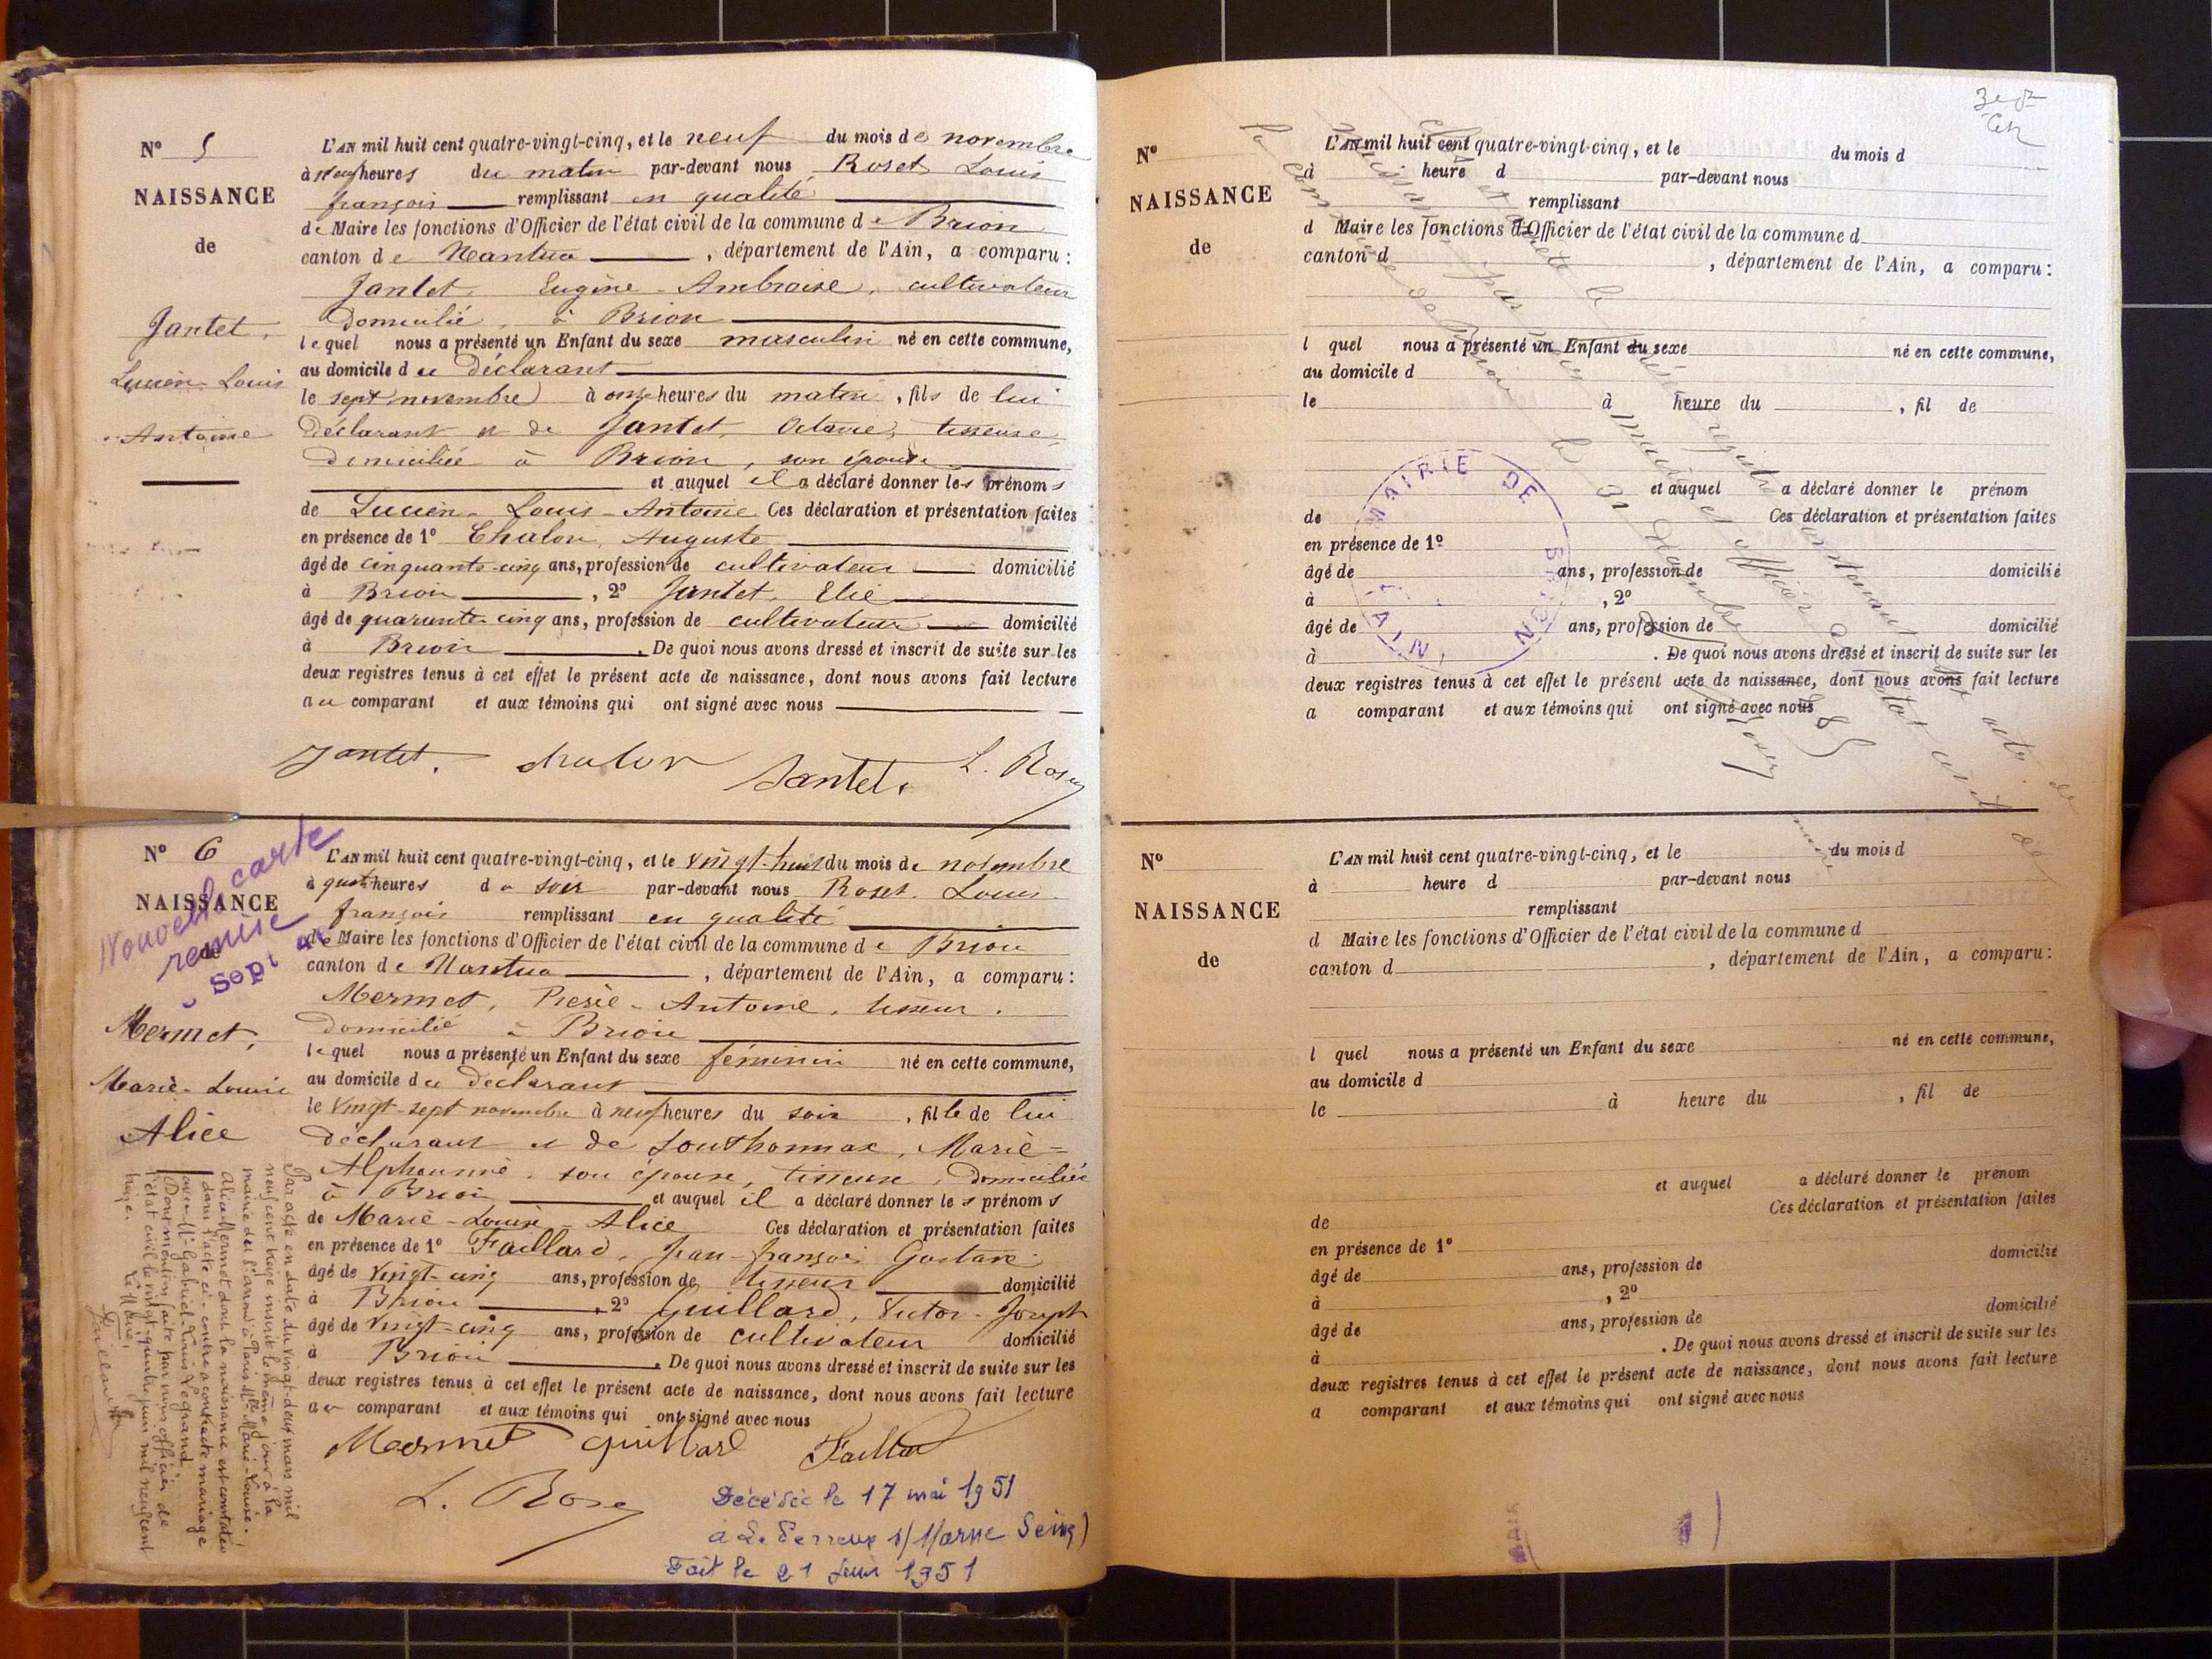 N° 5
NAISSANCE
de
Jantet,
Lucien-Louis
Antoine
L'AN mil huit cent quatre-vingt-cinq, et le neuf du mois de novembre
à neuf heures du matin par-devant nous Roset Louis
françois remplissant en qualité
de Maire les fonctions d'Officier de l'état civil de la commune de Brion
canton de Nantua , département de l'Ain, a comparu :
Jantet, Eugène-Ambroise, cultivateur
Domicilié, à Brion
lequel nous a présenté un Enfant du sexe masculin né en cette commune,
au domicile du Déclarant
le sept novembre à onze heures du matin , fils de lui
Déclarant et de Jantet, Octavie, tisseuse,
Domiciliée à Brion, son épouse
et auquel il a déclaré donner les prénoms
de Lucien-Louis-Antoine Ces déclaration et présentation faites
en présence de 1° Chalon, Auguste
âgé de cinquante-cinq ans, profession de cultivateur domicilié
à Brion , 2° Jantet, Elie
âgé de quarante-cinq ans, profession de cultivateur domicilié
à Brion . De quoi nous avons dressé et inscrit de suite sur les
deux registres tenus à cet effet le présent acte de naissance, dont nous avons fait lecture
au comparant et aux témoins qui ont signé avec nous
Jantet. chalon Jantet. L. Roset
N° 6
NAISSANCE
de
Nouvelle carte
remise
Sept
Mermet,
Marie-Louise
Alice
L'AN mil huit cent quatre-vingt-cinq, et le vingt-huit du mois de novembre
à quatre heures du soir par-devant nous Roset, Louis
françois remplissant en qualité
de Maire les fonctions d'Officier de l'état civil de la commune de Brion
canton de Nantua , département de l'Ain, a comparu :
Mermet, Antoine, tisseur.
Domicilié à Brion
lequel nous a présenté un Enfant du sexe féminin né en cette commune,
au domicile du déclarant
le vingt-sept novembre à neuf heures du soir , fille de lui
Déclarant et de Southonnax, Marie=
Alphonsine, son épouse, tisseuse, Domiciliée
à Brion et auquel il a déclaré donner les prénoms
de Marie-Louise-Alice Ces déclaration et présentation faites
en présence de 1° Faillard, Jean-françois Gustave
âgé de vingt-cinq ans, profession de tisseur domicilié
à Brion , 2° Guillard, Victor-Joseph
âgé de vingt-cinq ans, profession de cultivateur domicilié
à Brion . De quoi nous avons dressé et inscrit de suite sur les
deux registres tenus à cet effet le présent acte de naissance, dont nous avons fait lecture
au comparant et aux témoins qui ont signé avec nous
Mermet Guillard Faillard
L. Roset
Décédée le 17 mai 1951
à Le Perreux s/Marne Seine)
Fait le 21 Juin 1951
Par acte en date du vingt-deux mars mil
neuf cent treize inscrit le même jour à la
mairie du arrond^t à Paris M^lle Marie-Louise-
Alice Mermet dont la naissance est constatée
dans l'acte ci-contre a contracté mariage
avec M^r Gabriel Louis Legrand
Dont mention faite par nous officier de
l'état civil le vingt-quatre juin mil neuf cent
treize. Le Maire,
N°
NAISSANCE
de
L'AN mil huit cent quatre-vingt-cinq, et le du mois d
à heure d par-devant nous
remplissant
d Maire les fonctions d'Officier de l'état civil de la commune d
canton d , département de l'Ain, a comparu :
l quel nous a présenté un Enfant du sexe né en cette commune,
au domicile d
le à heure du , fil de
et auquel a déclaré donner le prénom
de Ces déclaration et présentation faites
en présence de 1°
âgé de ans, profession de domicilié
à , 2°
âgé de ans, profession de domicilié
à . De quoi nous avons dressé et inscrit de suite sur les
deux registres tenus à cet effet le présent acte de naissance, dont nous avons fait lecture
a comparant et aux témoins qui ont signé avec nous
Clos et arrêté le présent registre contenant actes de
naissance par nous maire et officier de l'état civil de
la commune de Brion le 31 Décembre 1885
MAIRIE DE BRION
(AIN)
N°
NAISSANCE
de
L'AN mil huit cent quatre-vingt-cinq, et le du mois d
à heure d par-devant nous
remplissant
d Maire les fonctions d'Officier de l'état civil de la commune d
canton d , département de l'Ain, a comparu :
l quel nous a présenté un Enfant du sexe né en cette commune,
au domicile d
le à heure du , fil de
et auquel a déclaré donner le prénom
de Ces déclaration et présentation faites
en présence de 1°
âgé de ans, profession de domicilié
à , 2°
âgé de ans, profession de domicilié
à . De quoi nous avons dressé et inscrit de suite sur les
deux registres tenus à cet effet le présent acte de naissance, dont nous avons fait lecture
a comparant et aux témoins qui ont signé avec nous